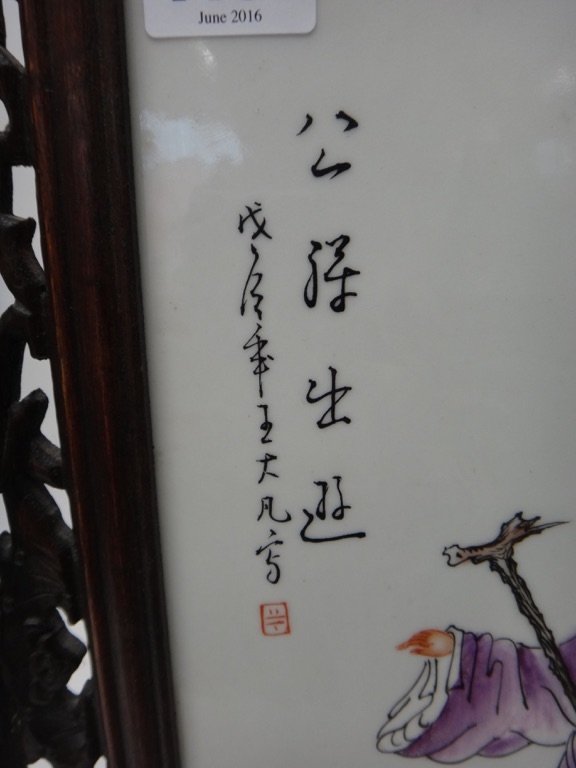 June 2016
公出遊
戊年王大凡寫